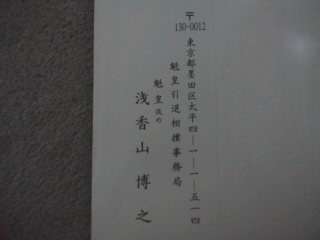 〒
130-0012
東京都墨田区太平四―一―一―五一四
魁皇引退相撲事務局
魁皇改め
浅香山博之